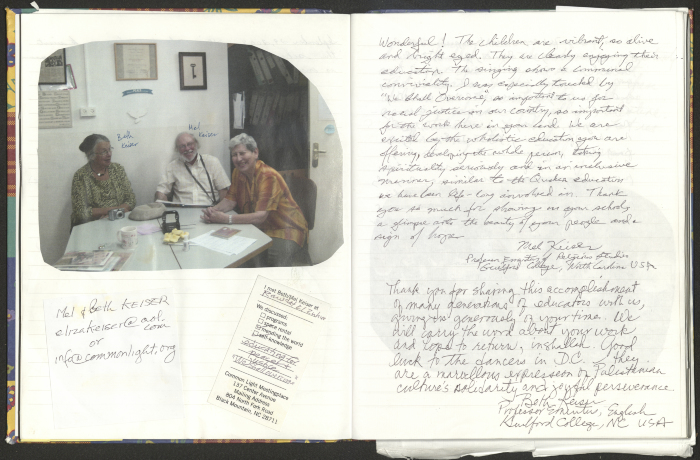 Beth
Keiser
Mel
Keiser
Mel & Beth KEISER
elizakeiser@aol.com
or
info@commonlight.org
I met Beth/Mel Keiser at
We discussed:
programs
space rental
repairing the world
knowledge
education for
Common Light Meetingplace
137 Center Avenue
Mailing Address:
804 North Fork Road
Black Mountain, NC 28711
Wonderful! The children are vibrant, so alive
and bright eyed. They are clearly enjoying their
education. The singing shows a communal
conviviality. I was especially touched by
"We Shall Overcome," so important to us for
racial justice in our country, so important
for the work here in your land. We are
excited by the wholistic education you are
offering, developing the whole person, taking
spirituality seriously and in an inclusive
manner, similar to the Quaker education
we have been life-long involved in. Thank
you so much for showing us your school,
a glimpse into the beauty of your people and a
sign of hope.
Mel Keiser
Professor Emeritus of Religious Studies
Guilford College, North Carolina USA
Thank you for sharing this accomplishment
of many generations of educators with us,
giving so generously of your time. We
will carry the word about your work
and hope to return, inshallah. Good
luck to the dancers in D.C. - they
are a marvellous expression of Palestinian
culture's solidarity and joyful perseverance.
Beth Keiser
Professor Emerita, English
Guilford College, NC USA